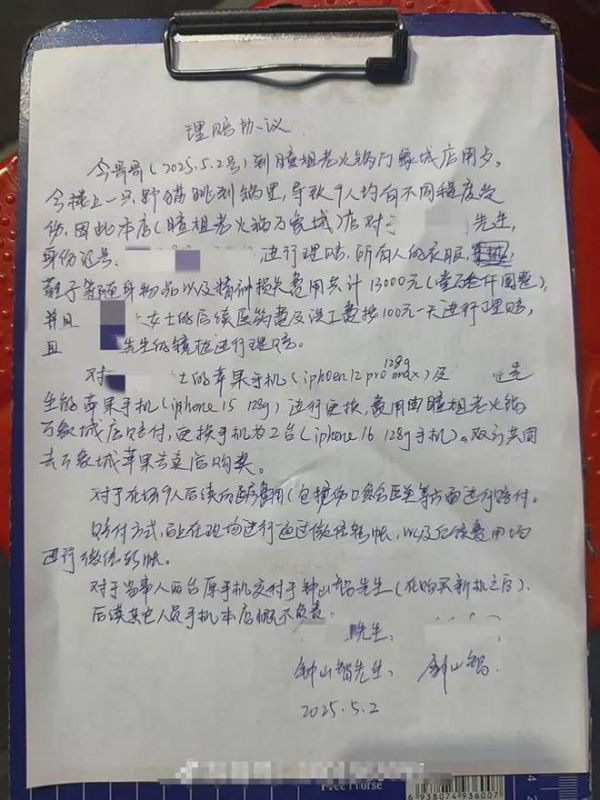 理赔协议
今哥哥(2025.5.2号)到瞳祖老火锅万象城店用歺。
今楼上一只野猫跳到锅里,导致9人均有不同程度受
伤,因此本店(瞳祖老火锅万象城)店对于 先生,
身份证号: 进行理赔,所有人的衣服,
鞋子等随身物品以及精神损失费用共计13000元(壹万叁仟圆整),
并且 女士的后续医药费及误工费按100元一天进行理赔,
且 先生的镜框进行理赔。
对 士的苹果手机(iphoen 12 pro max 128g)及 先
生的苹果手机(iphone 15 128g)进行更换,费用由瞳祖老火锅
万象城店赔付,更换手机为2台(iphone 16 128g手机)。双方共同
去万象城苹果专卖店购买。
对于在场9人后续所有费用(包括伤口复合医美等方面进行赔付。
赔付方式,已在现场进行通过微信转帐,以及后续费用均
进行微信转帐。
对于当事人两台原手机交付于钟山锅先生(在购买新机之后),
后续其它人员手机本店概不负责。
先生、
钟山锅先生、 钟山锅
2025.5.2
Free Horse
6 938074 936007